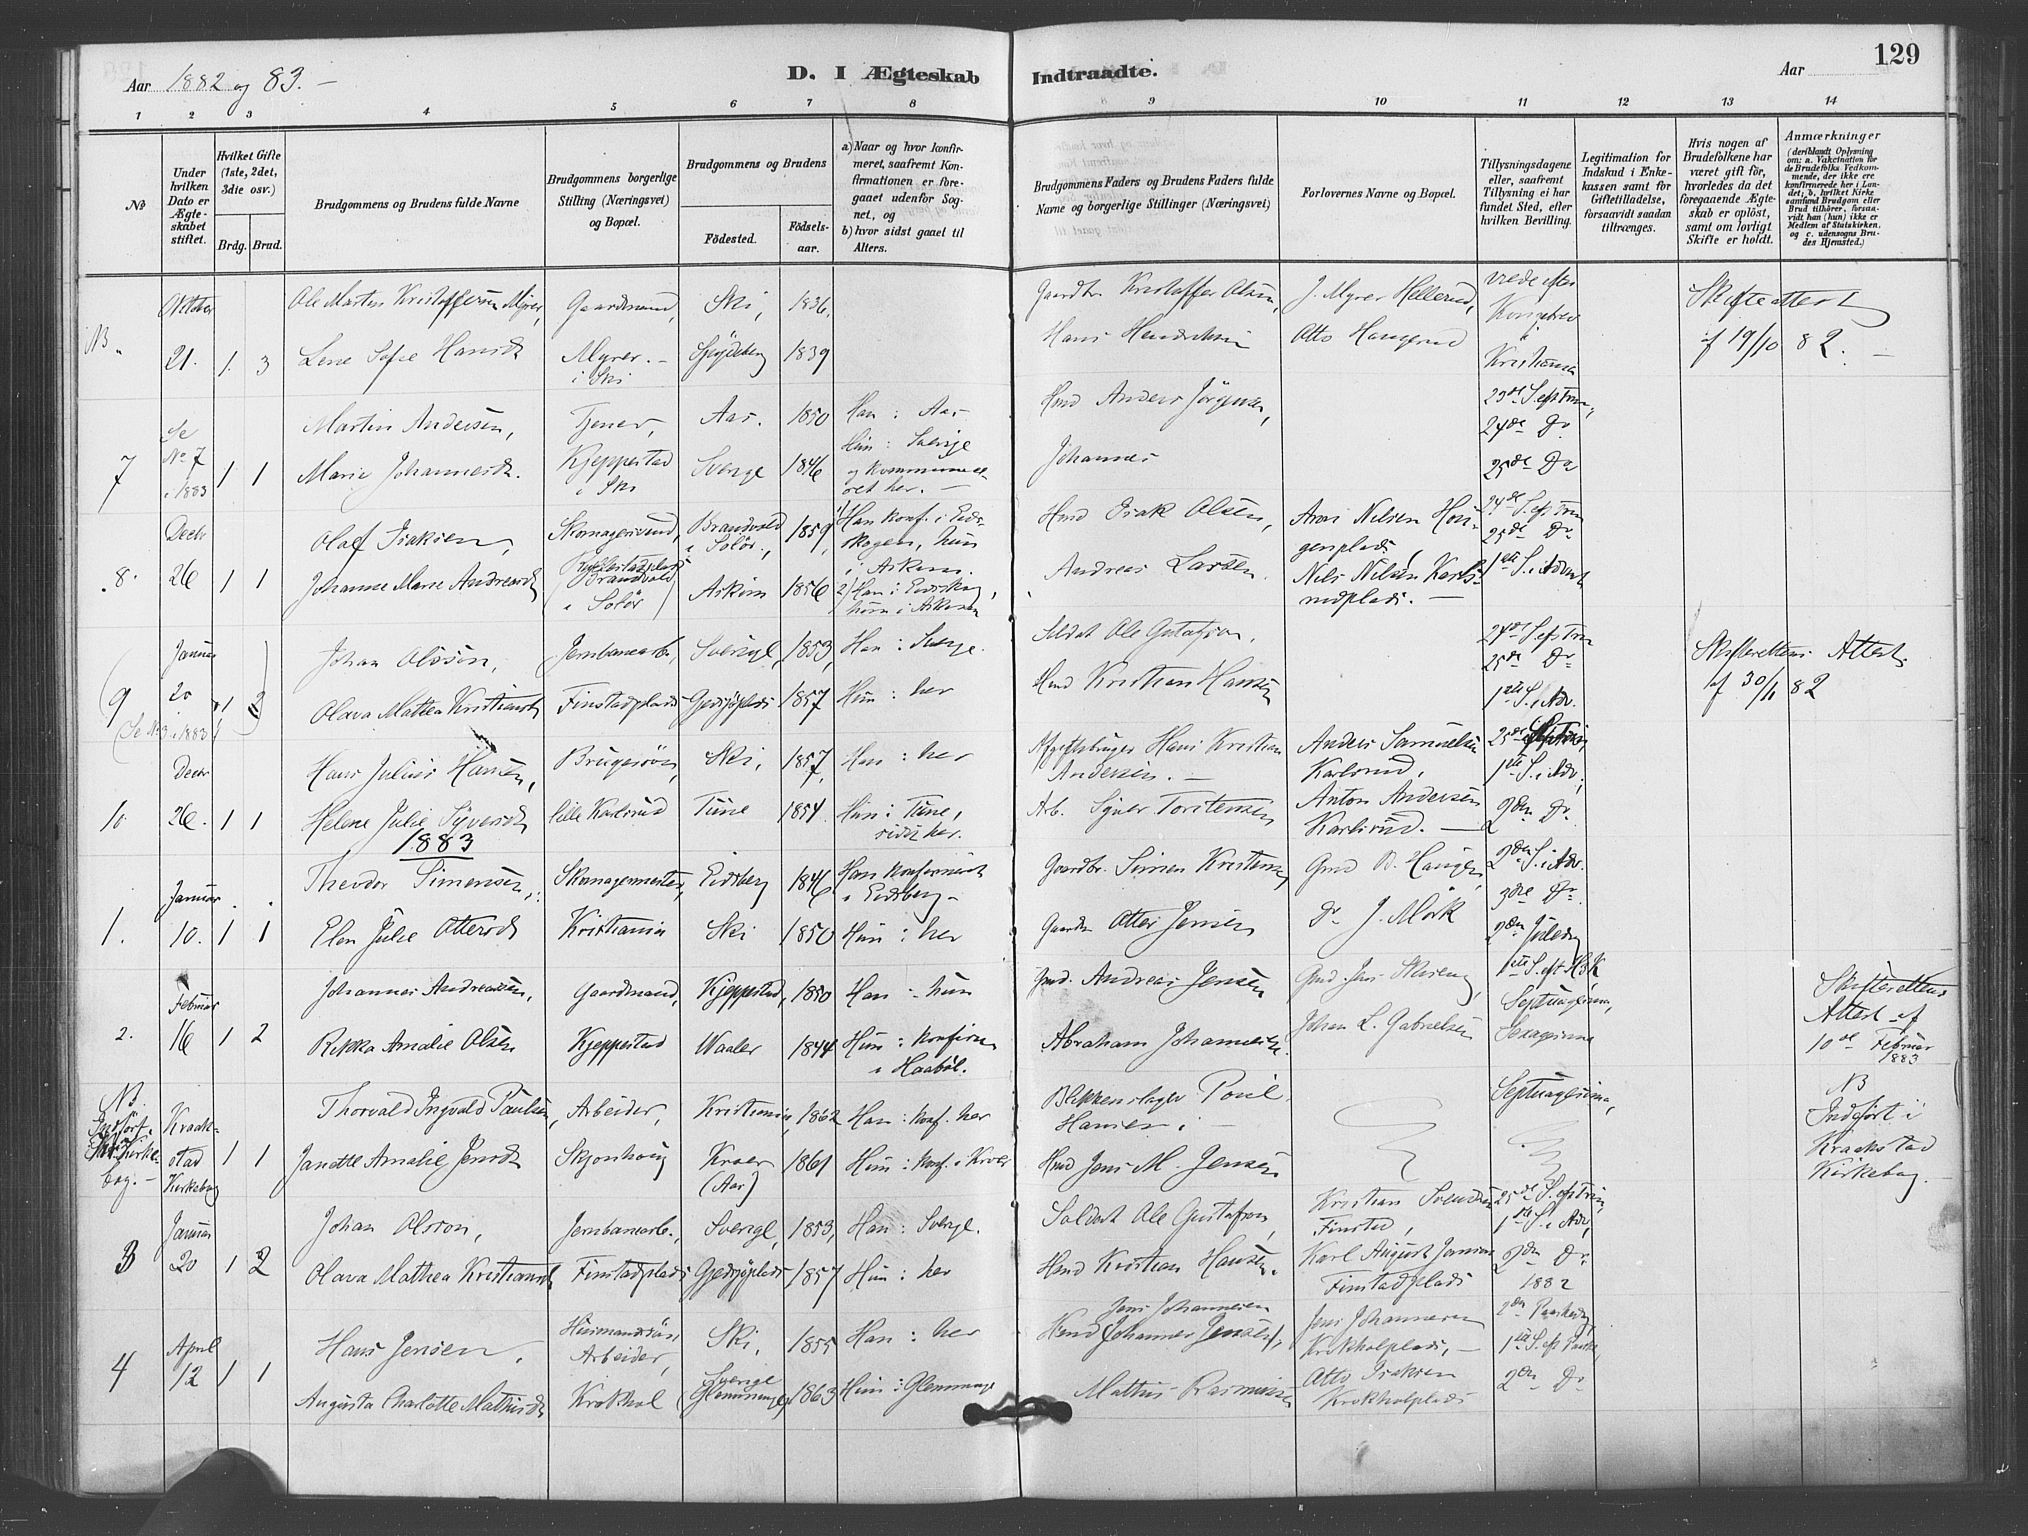 129
Aar 1882 og 83. –
D. I Ægteskab Indtraadte.
Aar
1 2 3 4 5 6 7 8 9 10 11 12 13 14
No
Under hvilken Dato er Ægteskabet stiftet.
Hvilket Gifte (1ste, 2det, 3die osv.)
Brdg. Brud.
Brudgommens og Brudens fulde Navne
Brudgommens borgerlige Stilling (Næringsvei) og Bopæl.
Brudgommens og Brudens
Fødested.
Fødselsaar.
a) Naar og hvor konfirmeret, saafremt Konfirmationen er foregaaet udenfor Sognet, og
b) hvor sidst gaaet til Alters.
Brudgommens Faders og Brudens Faders fulde Navne og borgerlige Stillinger (Næringsvei)
Forlovernes Navne og Bopæl.
Tillysningsdagene eller, saafremt Tillysning ei har fundet Sted, efter hvilken Bevilling.
Legitimation for Indskud i Enkekassen samt for Giftetilladelse, forsaavidt saadan tiltrænges.
Hvis nogen af Brudefolkene har været gift før, hvorledes da det foregaaende Ægteskab er opløst, samt om lovligt Skifte er holdt.
Anmærkninger (deriblandt Oplysning om: a. Vakcination for de Brudefolks Vedkommende, der ikke ere konfirmerede her i Landet; b. hvilket Kirkesamfund Brudgom eller Brud tilhører, forsaavidt han (hun) ikke er Medlem af Statskirken, og c. udensogns Brudes Hjemsted.)
Oktober Ole Martin Kristoffersen Myrer, Gaardmand, Ski, 1836, Gaardbr Kristoffer Olsen, J. Myrer Hellerud, Skifteattest
NB. 21. 1. 3 Lene Sofie Hansdt Myrer. – i Ski Spydeberg 1839 Hans Hendriksen Otto Haugerud Kongebrev Kristiania af 19/10 82. –
7 Se No 7 i 1883 1 1 Martin Andersen, Tjener, Aas. 1850 Han : Aas Hmd Anders Jörgensen, 23de S. ef. Trin,
Marie Johannesdt. Kjeppestad i Ski Sverige 1846 Hun : Sverige og kommuniceret her. – Johannes 24de Do 25de Do
Decbr Olaf Isaksen, Skomagersvend, Brandvold i Solör, 1859, Han konf. i Eidskogen, hun i Askim. Hmd Isak Olsen, Nilsen 24de S. ef Trin 25de Do
8. 26 1 1 Johanne Marie Andreasdt (Brandvold i Solör) Askim 1856 2) Han i Eidskog, hun i Askim Andreas Larsen. Nils Nilsen 1ste S. i Advent
Januar Johan Olsson, Jernbanearb., Sverige, 1853, Han : Sverige. Soldat Ole Gustafson, 24de S. ef Trin 25de Do Skifterettens Attest
9 20 1 2 Olava Mathea Kristiansdt Finstadplads Gjedsjöplads 1857 Hun : her Hmd Kristian Hansen 1ste S. i Adv. af 30/11 82
(Se No 3 i 1883)
Decbr Hans Julius Hansen, Brugersön, Ski, 1857, Han : her Hans Kristian Andersen. – Anders Samuelsen Karlsrud, 1ste S. i Adv,
10 26. 1 1 Helene Julie Syversdt lille Karlsrud Tune 1854 Hun : Tune, sidst her. Arb. Syver Torstensen Anton Andersen Karlsrud. – 2den Do.
1883
Januar Theodor Simensen, Skomagermester, Eidsberg 1846 Han konfirmeret i Eidsberg – Gaardbr. Simen Kristensen, Gmd B. Haugen, 2den S. i Adv. 3die Do.
1. 10. 1 1 Elen Julie Ottersdt Kristiania Ski 1850 Hun : her Gaardbr Otter Jensen Do J. Mörk 2den Juledag
Februar Johannes Andreassen, Gaardmand, Kjeppestad, 1850 Han – hun Gmd. Andreas Jensen Gmd. Jens 1ste S. ef H3K Septuagesima, Skifterettens
2. 16 1 2 Rikka Amalie Olsen Kjeppestad Waaler 1844 Hun : konfirm i Haaböl. Abraham Johannesen. Johan L. Gabrielsen Sexagesima Attest af 10de Februar 1883
NB. Indfört Kraakstad Kirkebog 1 1 Thorvald Ingvald Paulsen, Arbeider, Kristiania, 1862 Han : konf. her Blikkenslager Poul Hansen, – Septuagesima, NB Indfört i
Janette Amalie Jensdt Skjonhaug Kroer (Aas) 1861 Hun : konf. i Kroer Hmd Jens M. Jensen Kraakstad Kirkebog.
Januar Johan Olsson, Jernbanearb., Sverige, 1853, Han : Sverige. Soldat Ole Gustafson, Kristian Svendsen Finstad, 25de S. ef Trin 1ste S. i Adv,
3 20 1 2 Olava Mathea Kristiansdt Finstadplads Gjedsjöplads 1857 Hun : her Hmd Kristian Hansen. Karl August Jansen Finstadplads 2den Do. 1882
April Hans Jensen, Husmandssön, Arbeider, Ski, 1855 Han : her Jens Johannesen Hmd (Johannes Jensen), Jens Johannesen Krokholplads, – 2den Paaskedag, 1ste S. ef Paaske,
4 12 1 1 Augusta Charlotte Mathisdt Krokhol Sverige (Glemminge) 1863 Hun : Glemminge Mathis Rasmussen Otto Isaksen Krokholplads 2den Do